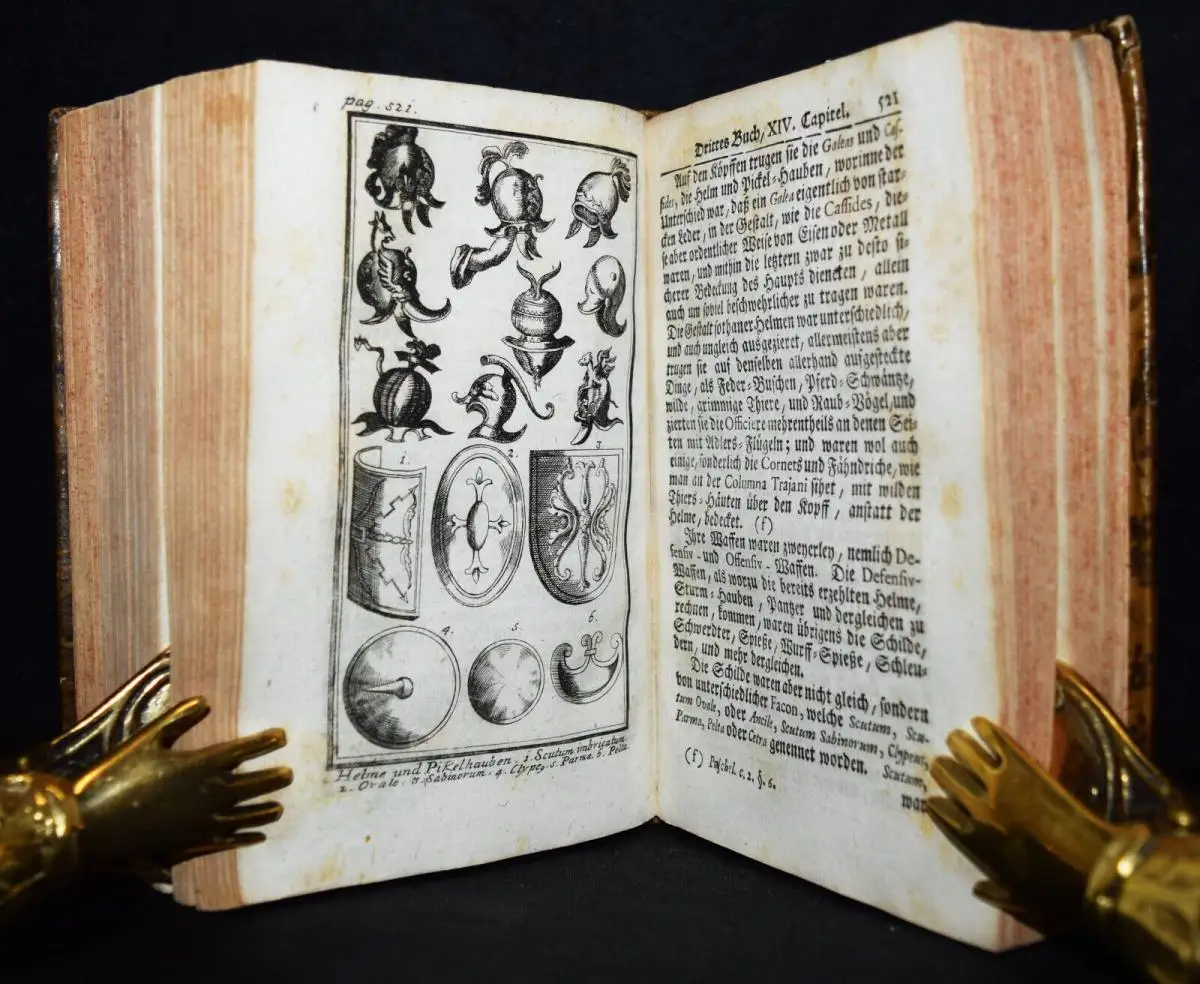 pag. 521.
1.
2.
3.
4.
5.
6.
Helme und Pikelhauben. 1. Scutum imbricatum
2. Ovale. 3. Sabinorum. 4. Clype, 5. Parma. 6. Pelta
Drittes Buch, XIV. Capitel. 521
Auf den Köpffen trugen sie die Galeas und Cas-
sides, die Helm und Pickel-Hauben, worinne der
Unterschied war, daß ein Galea eigentlich von star-
cken Leder, in der Gestalt, wie die Cassides, die-
se aber ordentlicher Weise von Eisen oder Metall
waren, und mithin die letztern zwar zu desto si-
cherer Bedeckung des Haupts dieneten, allein
auch um soviel beschwehrlicher zu tragen waren.
Die Gestalt sothaner Helmen war unterschiedlich,
und auch ungleich ausgezieret, allermeistens aber
trugen sie auf denselben allerhand aufgesteckte
Dinge, als Feder-Buschen, Pferd-Schwäntze,
wilde, grimmige Thiere, und Raub-Vögel, und
zierten sie die Officiere mehrentheils an denen Sei-
ten mit Adlers-Flügeln; und waren wol auch
einige, sonderlich die Cornets und Fähndriche, wie
man an der Columna Trajani sihet, mit wilden
Thiers-Häuten über den Kopff, anstatt der
Helme, bedecket. (f)
Ihre Waffen waren zweyerley, nemlich De-
fensiv- und Offensiv-Waffen. Die Defensiv-
Waffen, als worzu die bereits erzehlten Helme,
Sturm-Hauben, Pantzer und dergleichen zu
rechnen, kommen, waren übrigens die Schilde,
Schwerdter, Spieße, Wurff-Spieße, Schleu-
dern, und mehr dergleichen.
Die Schilde waren aber nicht gleich, sondern
von unterschiedlicher Facon, welche Scutum, Scu-
tum Ovale, oder Ancile, Scutum Sabinorum, Clypeus,
Parma, Pelta oder Cetra genennet worden. Scutum,
(f) c. 2. §. 6.
war